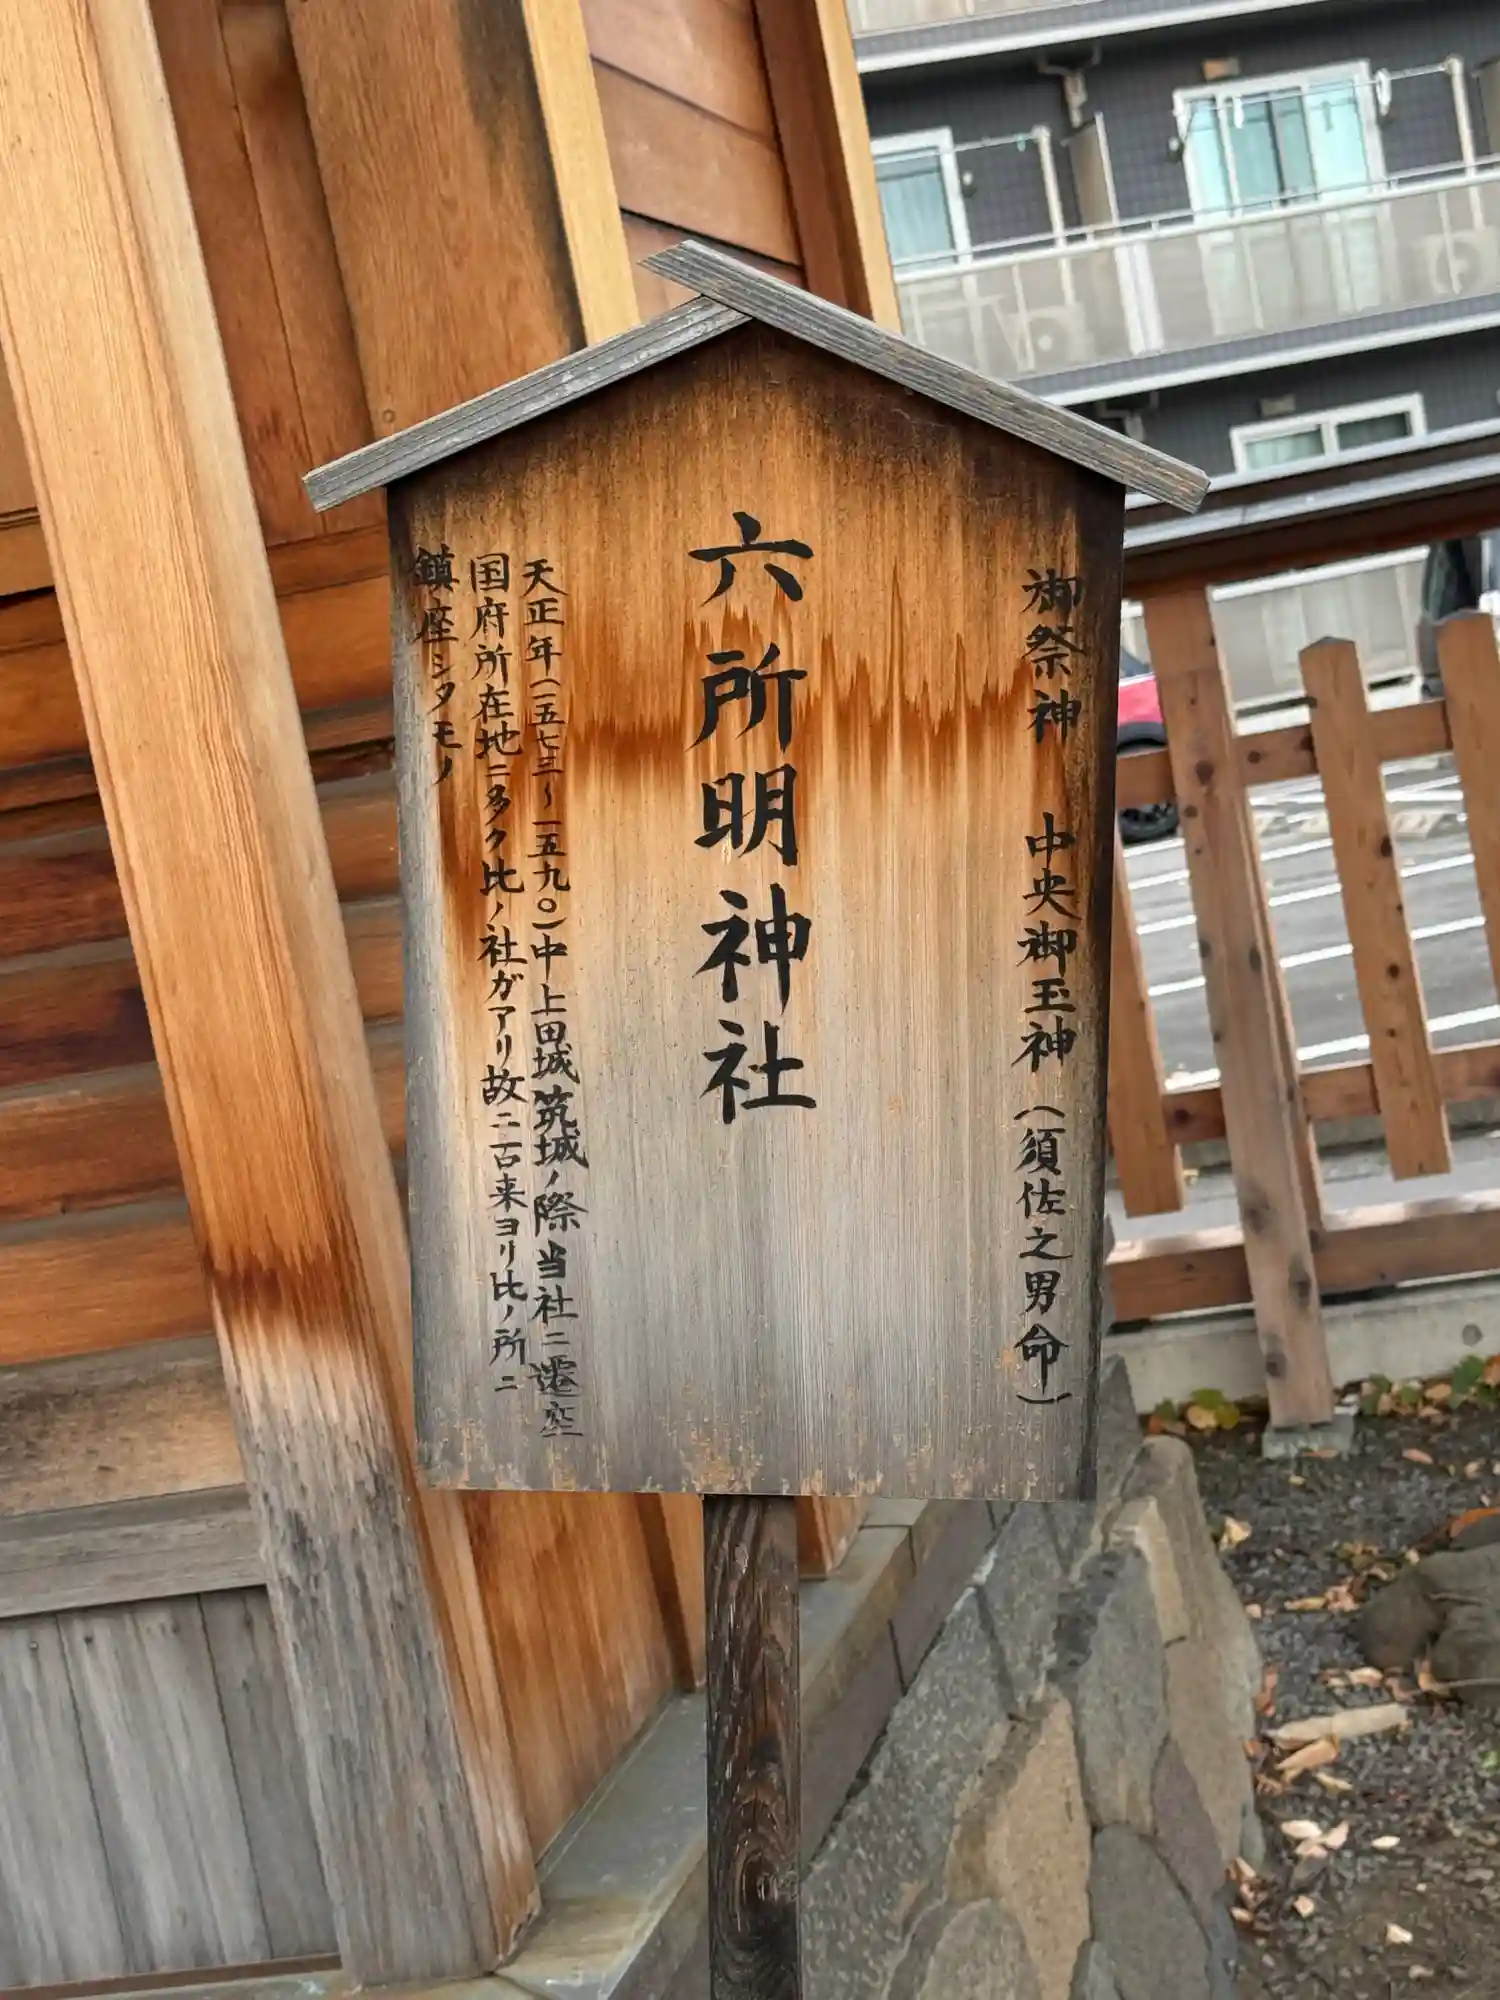 御祭神 中央御玉神(須佐之男命)
六所明神社
天正年(一五七三～一五九〇)中上田城筑城ノ際当社ニ遷座
国府所在地ニ多ク比ノ社ガアリ故ニ古来ヨリ比ノ所ニ
鎮座シタモノ